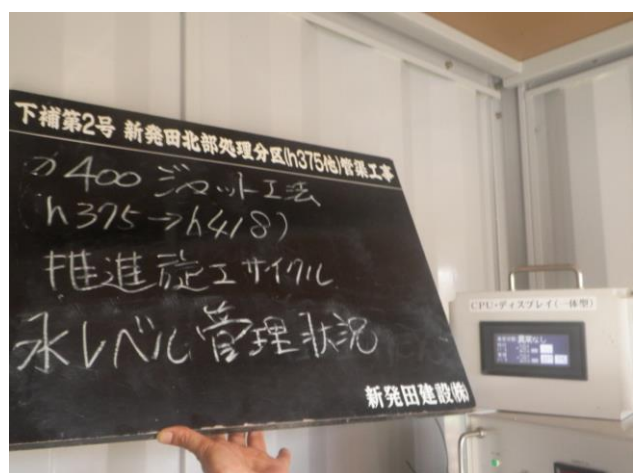 下補第2号 新発田北部処理分区(h375他)管渠工事
φ400 ジャット工法
(h375→h418)
推進施工サイクル
水レベル管理状況
新発田建設(株)
CPU・ディスプレイ(一体型)
異常なし